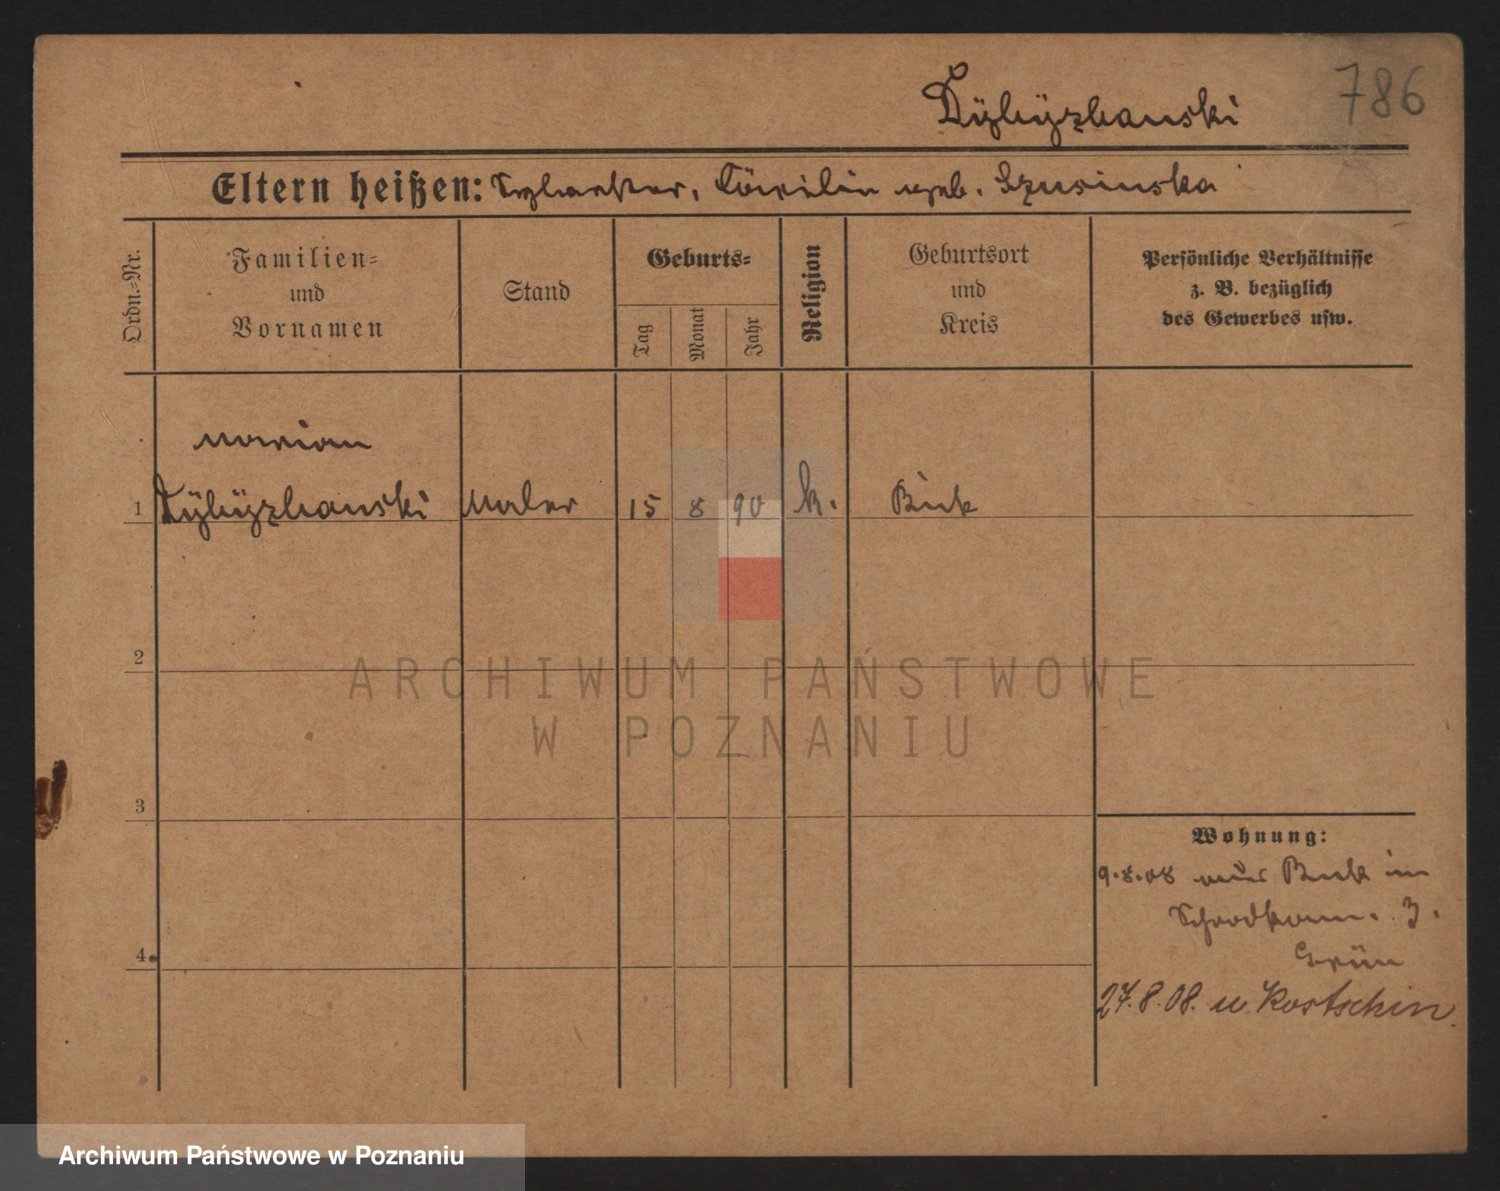 786
Eltern heißen: Sylvester, Cäcilie geb.
Ordn.-Nr.
Familien-
und
Vornamen
Stand
Geburts-
Tag
Monat
Jahr
Religion
Geburtsort
und
Kreis
Persönliche Verhältnisse
z. B. bezüglich
des Gewerbes usw.
Marian
1 Maler 15 8 90 k. Buk
2
3
4
ARCHIWUM PAŃSTWOWE
W POZNANIU
Wohnung:
9.8.08 aus Buk in
3.
Grün
27.8.08. n. Kostschin.
Archiwum Państwowe w Poznaniu